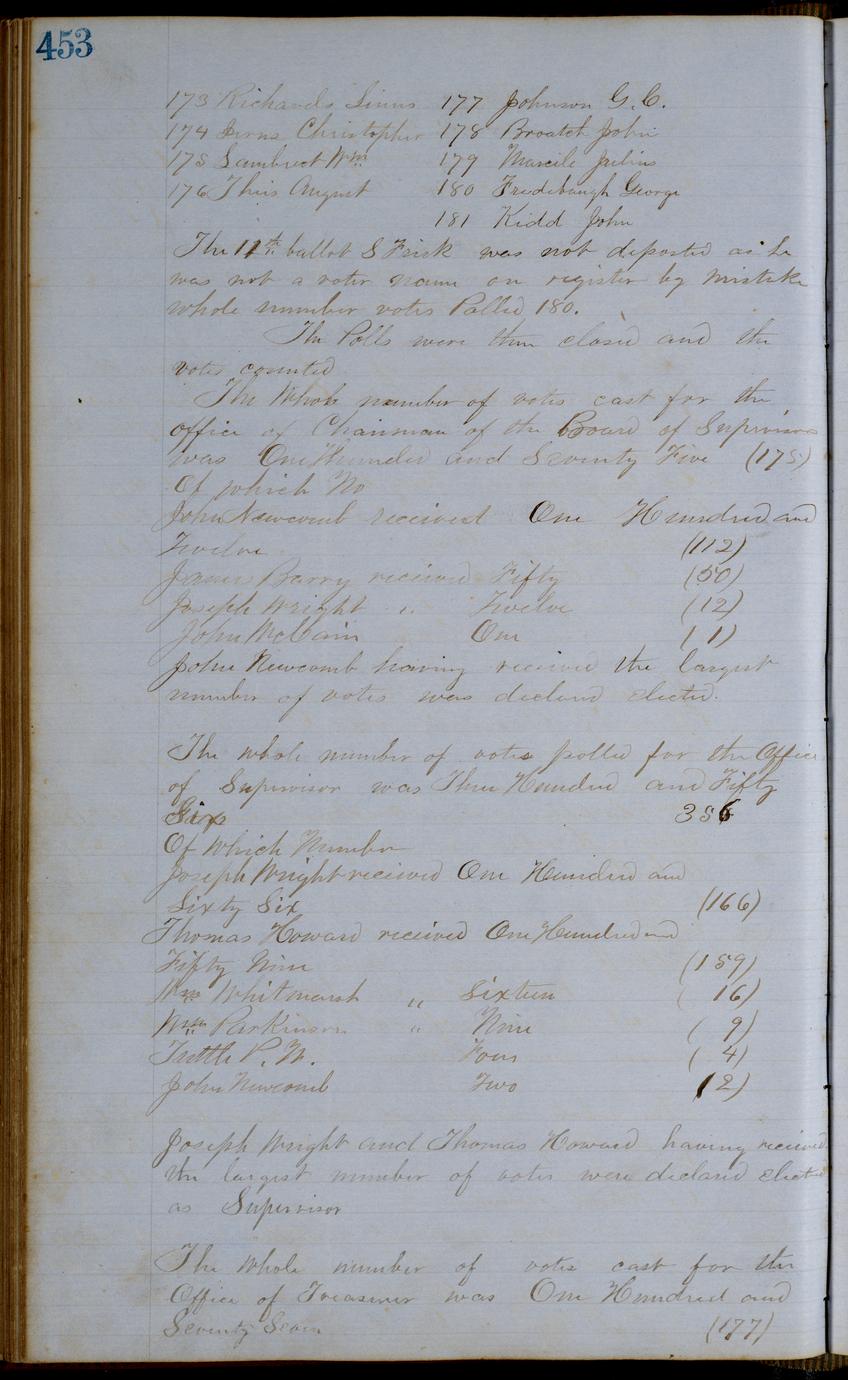 453
173 Richards Linus 177 Johnson G. C.
174 Christopher 178 Broatch John
175 Lambrect Wm 179 Julius
176 This August 180 Fredebaugh George
181 Kidd John
The 11th ballot S Frisk was not deposted as he
was not a voter name on register by mistake
whole number votes Polled 180.
The Polls were then closed and the
votes counted
The Whole number of votes cast for the
office of Chairman of the Board of Supervisors
was One Hundred and Seventy Five (175)
Of which No
John Newcomb received One Hundred and
Twelve (112)
James Barry received Fifty (50)
Joseph Wright " Twelve (12)
John McCain One (1)
John Newcomb having received the largest
number of votes was declared elected.
The whole number of votes polled for the Office
of Supervisor was Three Hundred and Fifty
Six 356
Of Which Number
Joseph Wright received One Hundred and
Sixty Six (166)
Thomas Howard received One Hundred and
Fifty Nine (159)
Wm Whitmarsh " Sixteen (16)
Wm Parkinson " Nine (9)
Tuttle P. W. Four (4)
John Newcomb Two (2)
Joseph Wright and Thomas Howard having received
the largest number of votes were declared elected
as Supervisor
The whole number of votes cast for the
Office of Treasurer was One Hundred and
Seventy Seven (177)